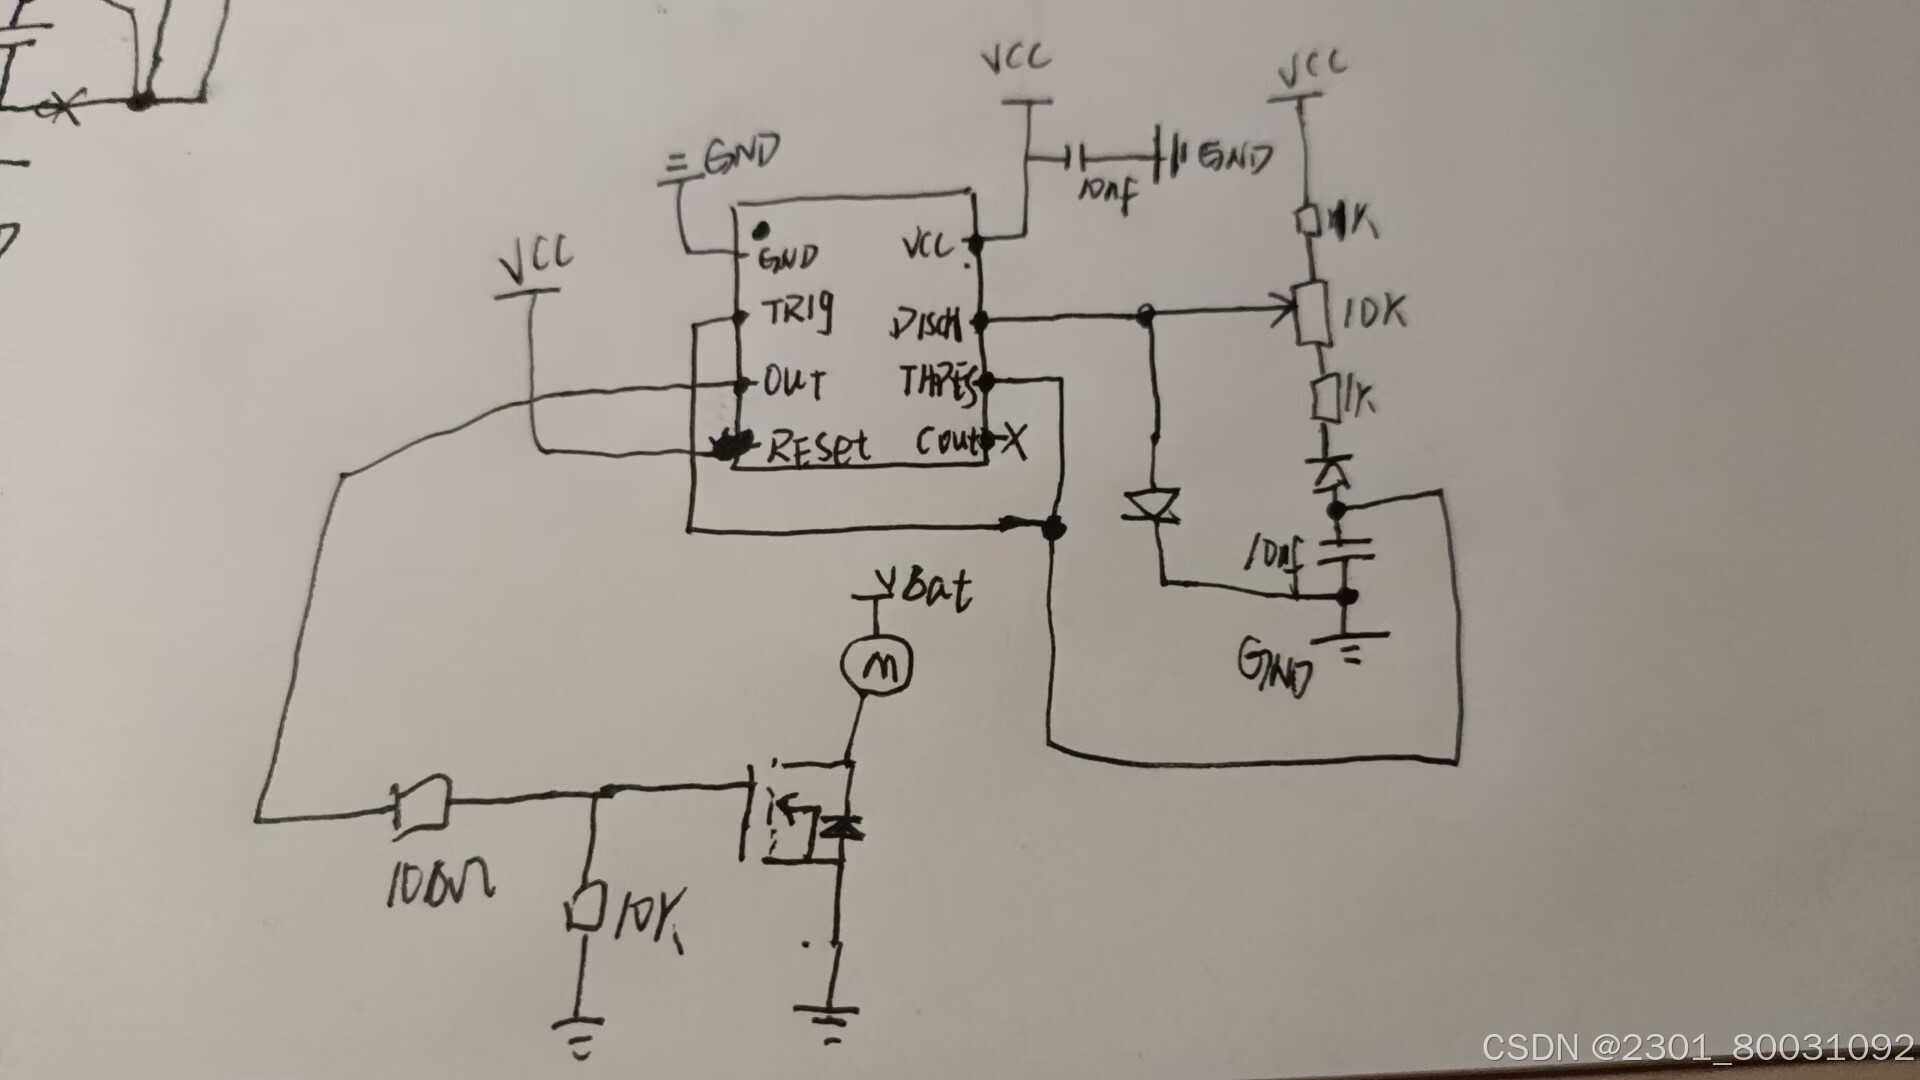 VCC
VCC
GND
GND
10nf
1K
VCC
GND
VCC
TRIg
DISCH
10K
OUT
THRES
1K
RESet
Cout
X
10nf
VBat
GND
M
100Ω
10K
CSDN @2301_80031092